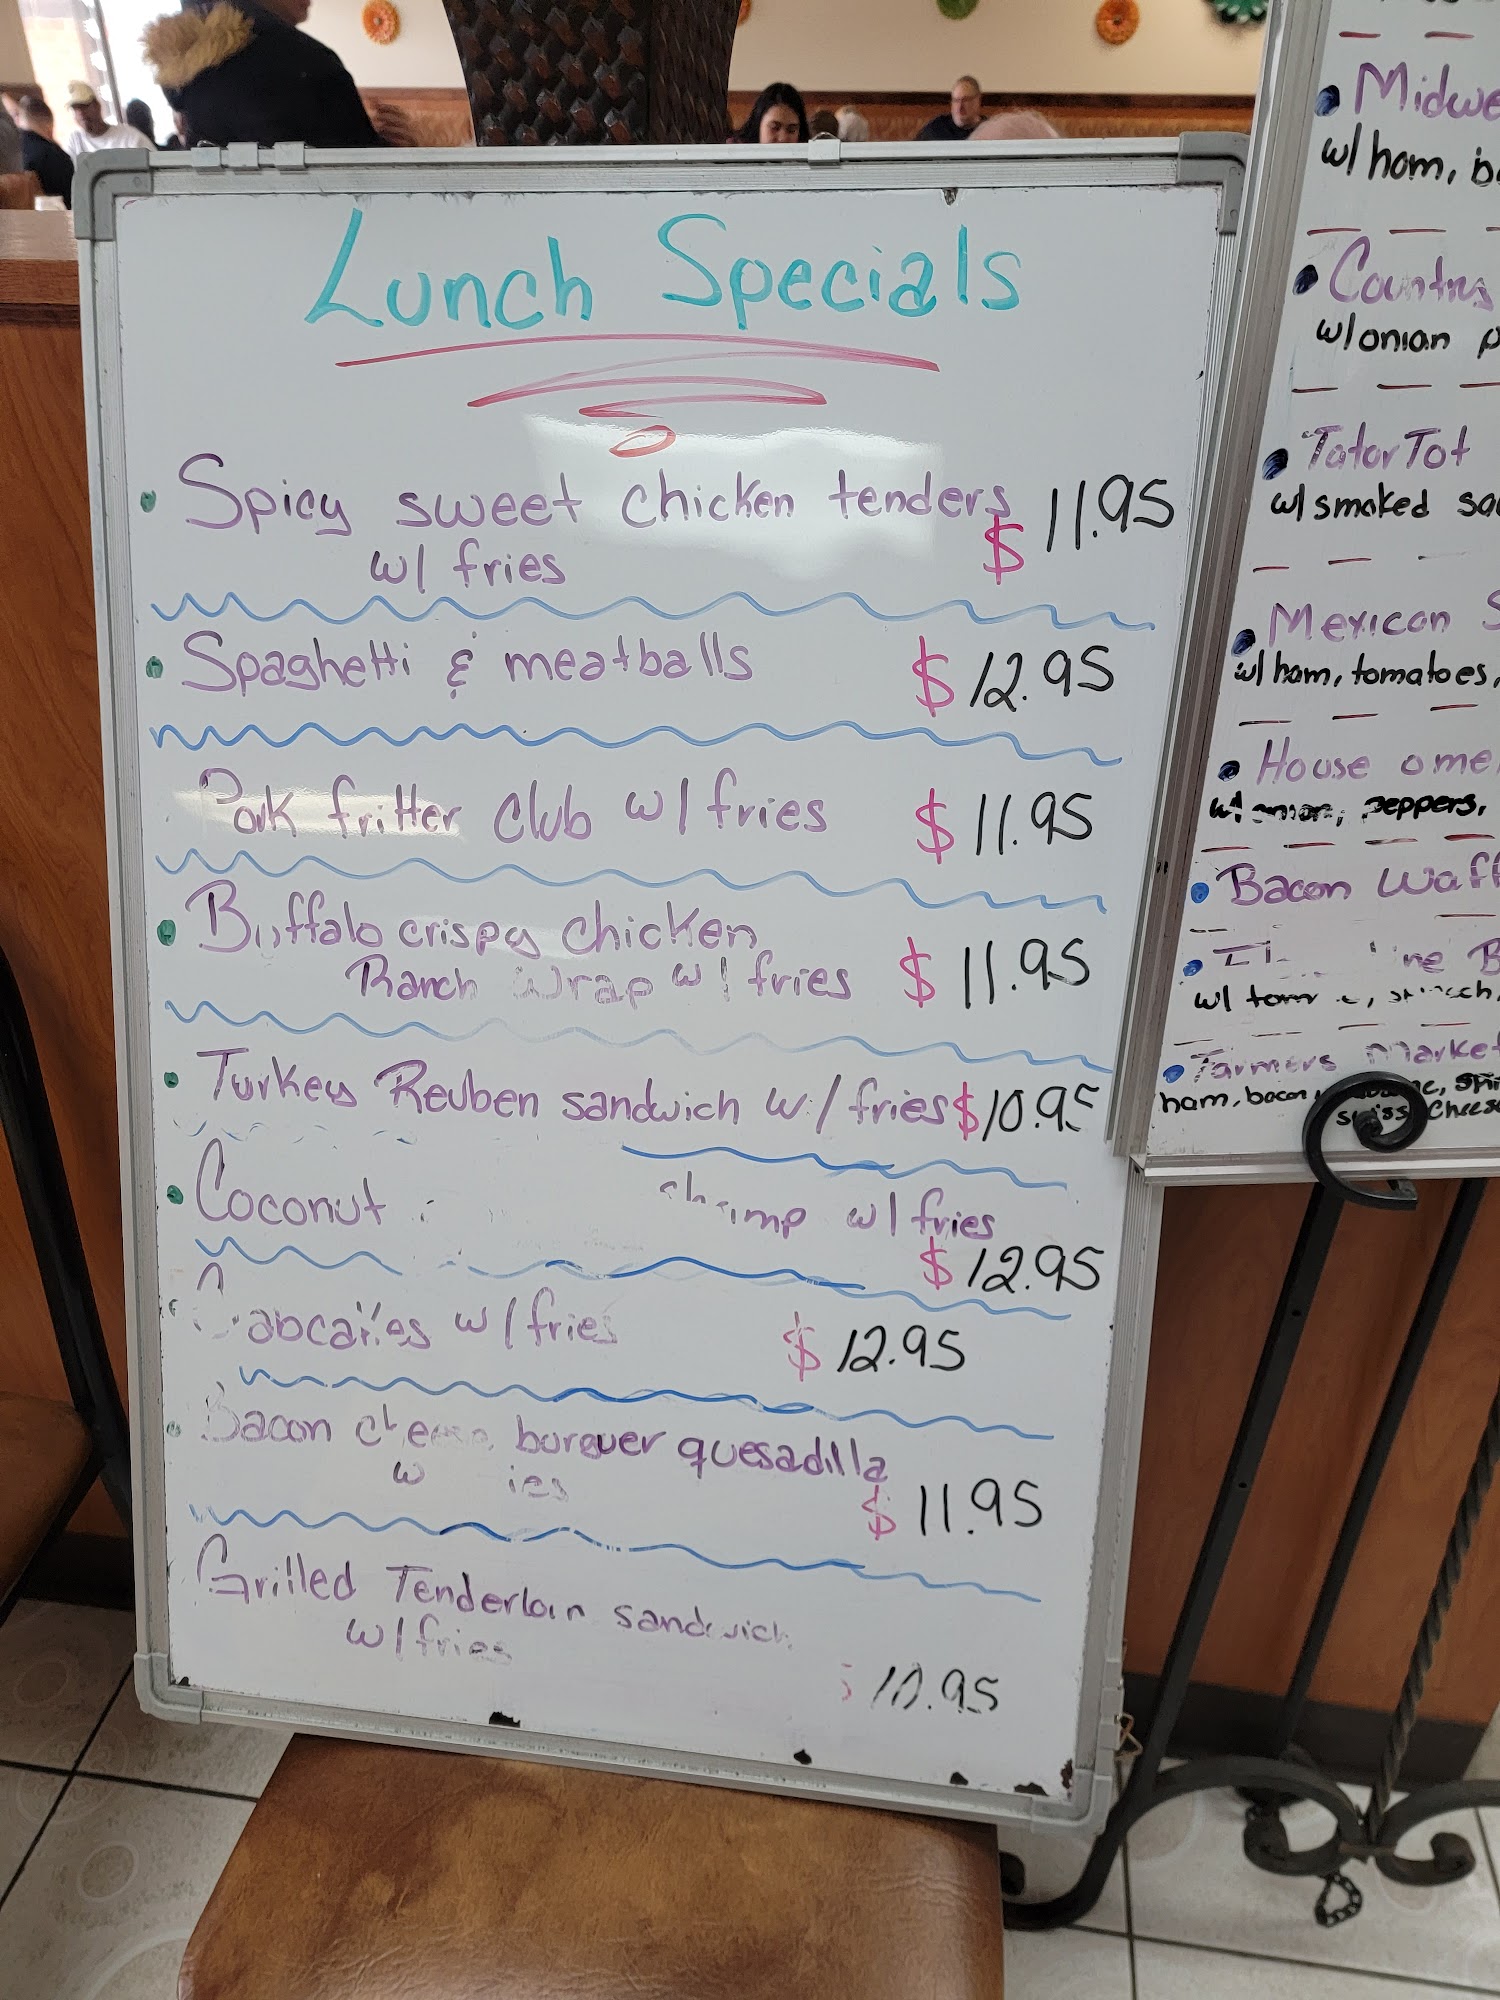 Lunch Specials
Spicy sweet chicken tenders $ 11.95
w/ fries
Spaghetti & meatballs $ 12.95
Pork fritter club w/ fries $ 11.95
Buffalo crispy chicken
Ranch wrap w/ fries $ 11.95
Turkey Reuben sandwich w/ fries $10.95
Coconut w/ fries
$ 12.95
w/ fries $ 12.95
Bacon burguer quesadilla
$ 11.95
Grilled Tenderloin sandwich
w/ fries
10.95
w/ ham,
Country
w/ onion
Tator Tot
w/ smoked
Mexican
w/ ham, tomatoes,
House
peppers,
Bacon
w/
Farmers
ham, bacon,
cheese